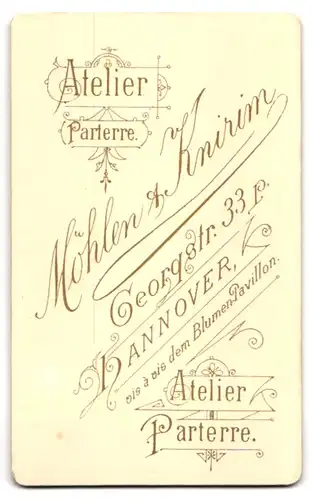 Atelier
Parterre.
Möhlen & Knirim
Georgstr. 33 p.
HANNOVER,
vis à vis dem Blumen-Pavillon.
Atelier
Parterre.